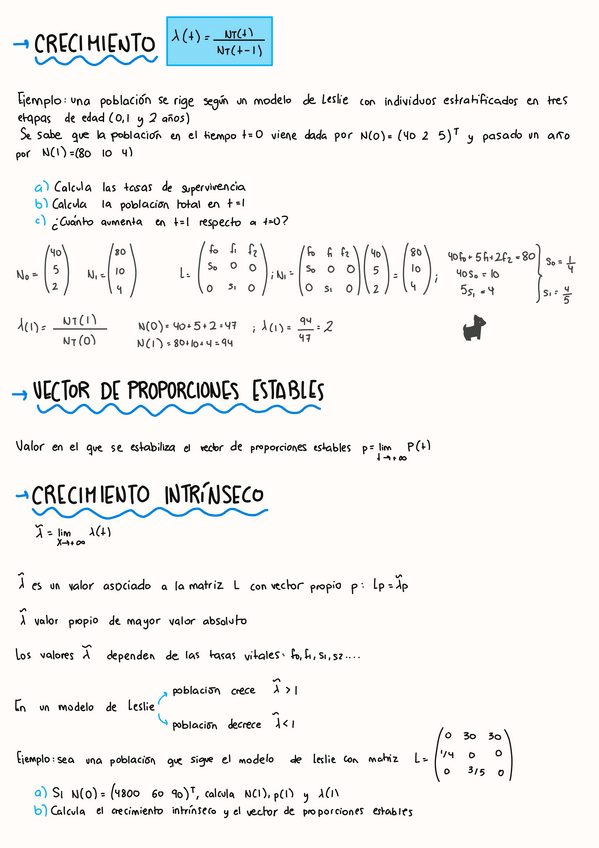 → CRECIMIENTO λ(t) = NT(t) / NT(t-1)
Ejemplo: una población se rige según un modelo de Leslie con individuos estratificados en tres
etapas de edad (0,1 y 2 años)
Se sabe que la población en el tiempo t=0 viene dada por N(0) = (40 2 5)ᵀ y pasado un año
por N(1) =(80 10 4)
a) Calcula las tasas de supervivencia
b) Calcula la población total en t=1
c) ¿Cuánto aumenta en t=1 respecto a t=0?
N₀ = (40 5 2) N₁ = (80 10 4) L = (f₀ f₁ f₂ / S₀ 0 0 / 0 S₁ 0) ; N₁ = (f₀ f₁ f₂ / S₀ 0 0 / 0 S₁ 0) (40 5 2) = (80 10 4) ; 40f₀ + 5f₁ + 2f₂ = 80
40S₀ = 10
5S₁ = 4
S₀ = 1/4
S₁ = 4/5
λ(1) = NT(1) / NT(0) N(0) = 40+5+2 = 47 ; λ(1) = 94/47 = 2
N(1) = 80+10+4 = 94
→ VECTOR DE PROPORCIONES ESTABLES
Valor en el que se estabiliza el vector de proporciones estables p = lim t→+∞ P(t)
→ CRECIMIENTO INTRÍNSECO
λ̃ = lim x→+∞ λ(t)
λ̃ es un valor asociado a la matriz L con vector propio p: Lp = λ̃p
λ̃ valor propio de mayor valor absoluto
Los valores λ̃ dependen de las tasas vitales: f₀, f₁, S₁, S₂....
población crece λ̃ > 1
En un modelo de Leslie
población decrece λ̃ < 1
Ejemplo: sea una población que sigue el modelo de leslie con matriz L = (0 30 30 / 1/4 0 0 / 0 3/5 0)
a) Si N(0) = (4800 60 90)ᵀ, calcula N(1), p(1) y λ(1)
b) Calcula el crecimiento intrínseco y el vector de proporciones estables